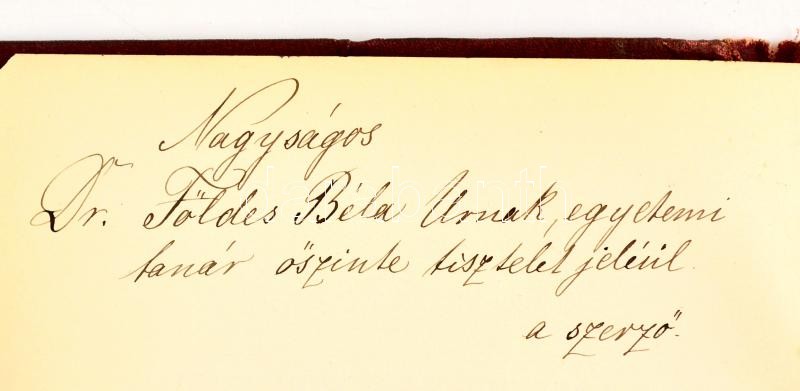 Nagyságos
Dr. Földes Béla Urnak, egyetemi
tanár őszinte tisztelet jeléül
a szerző.